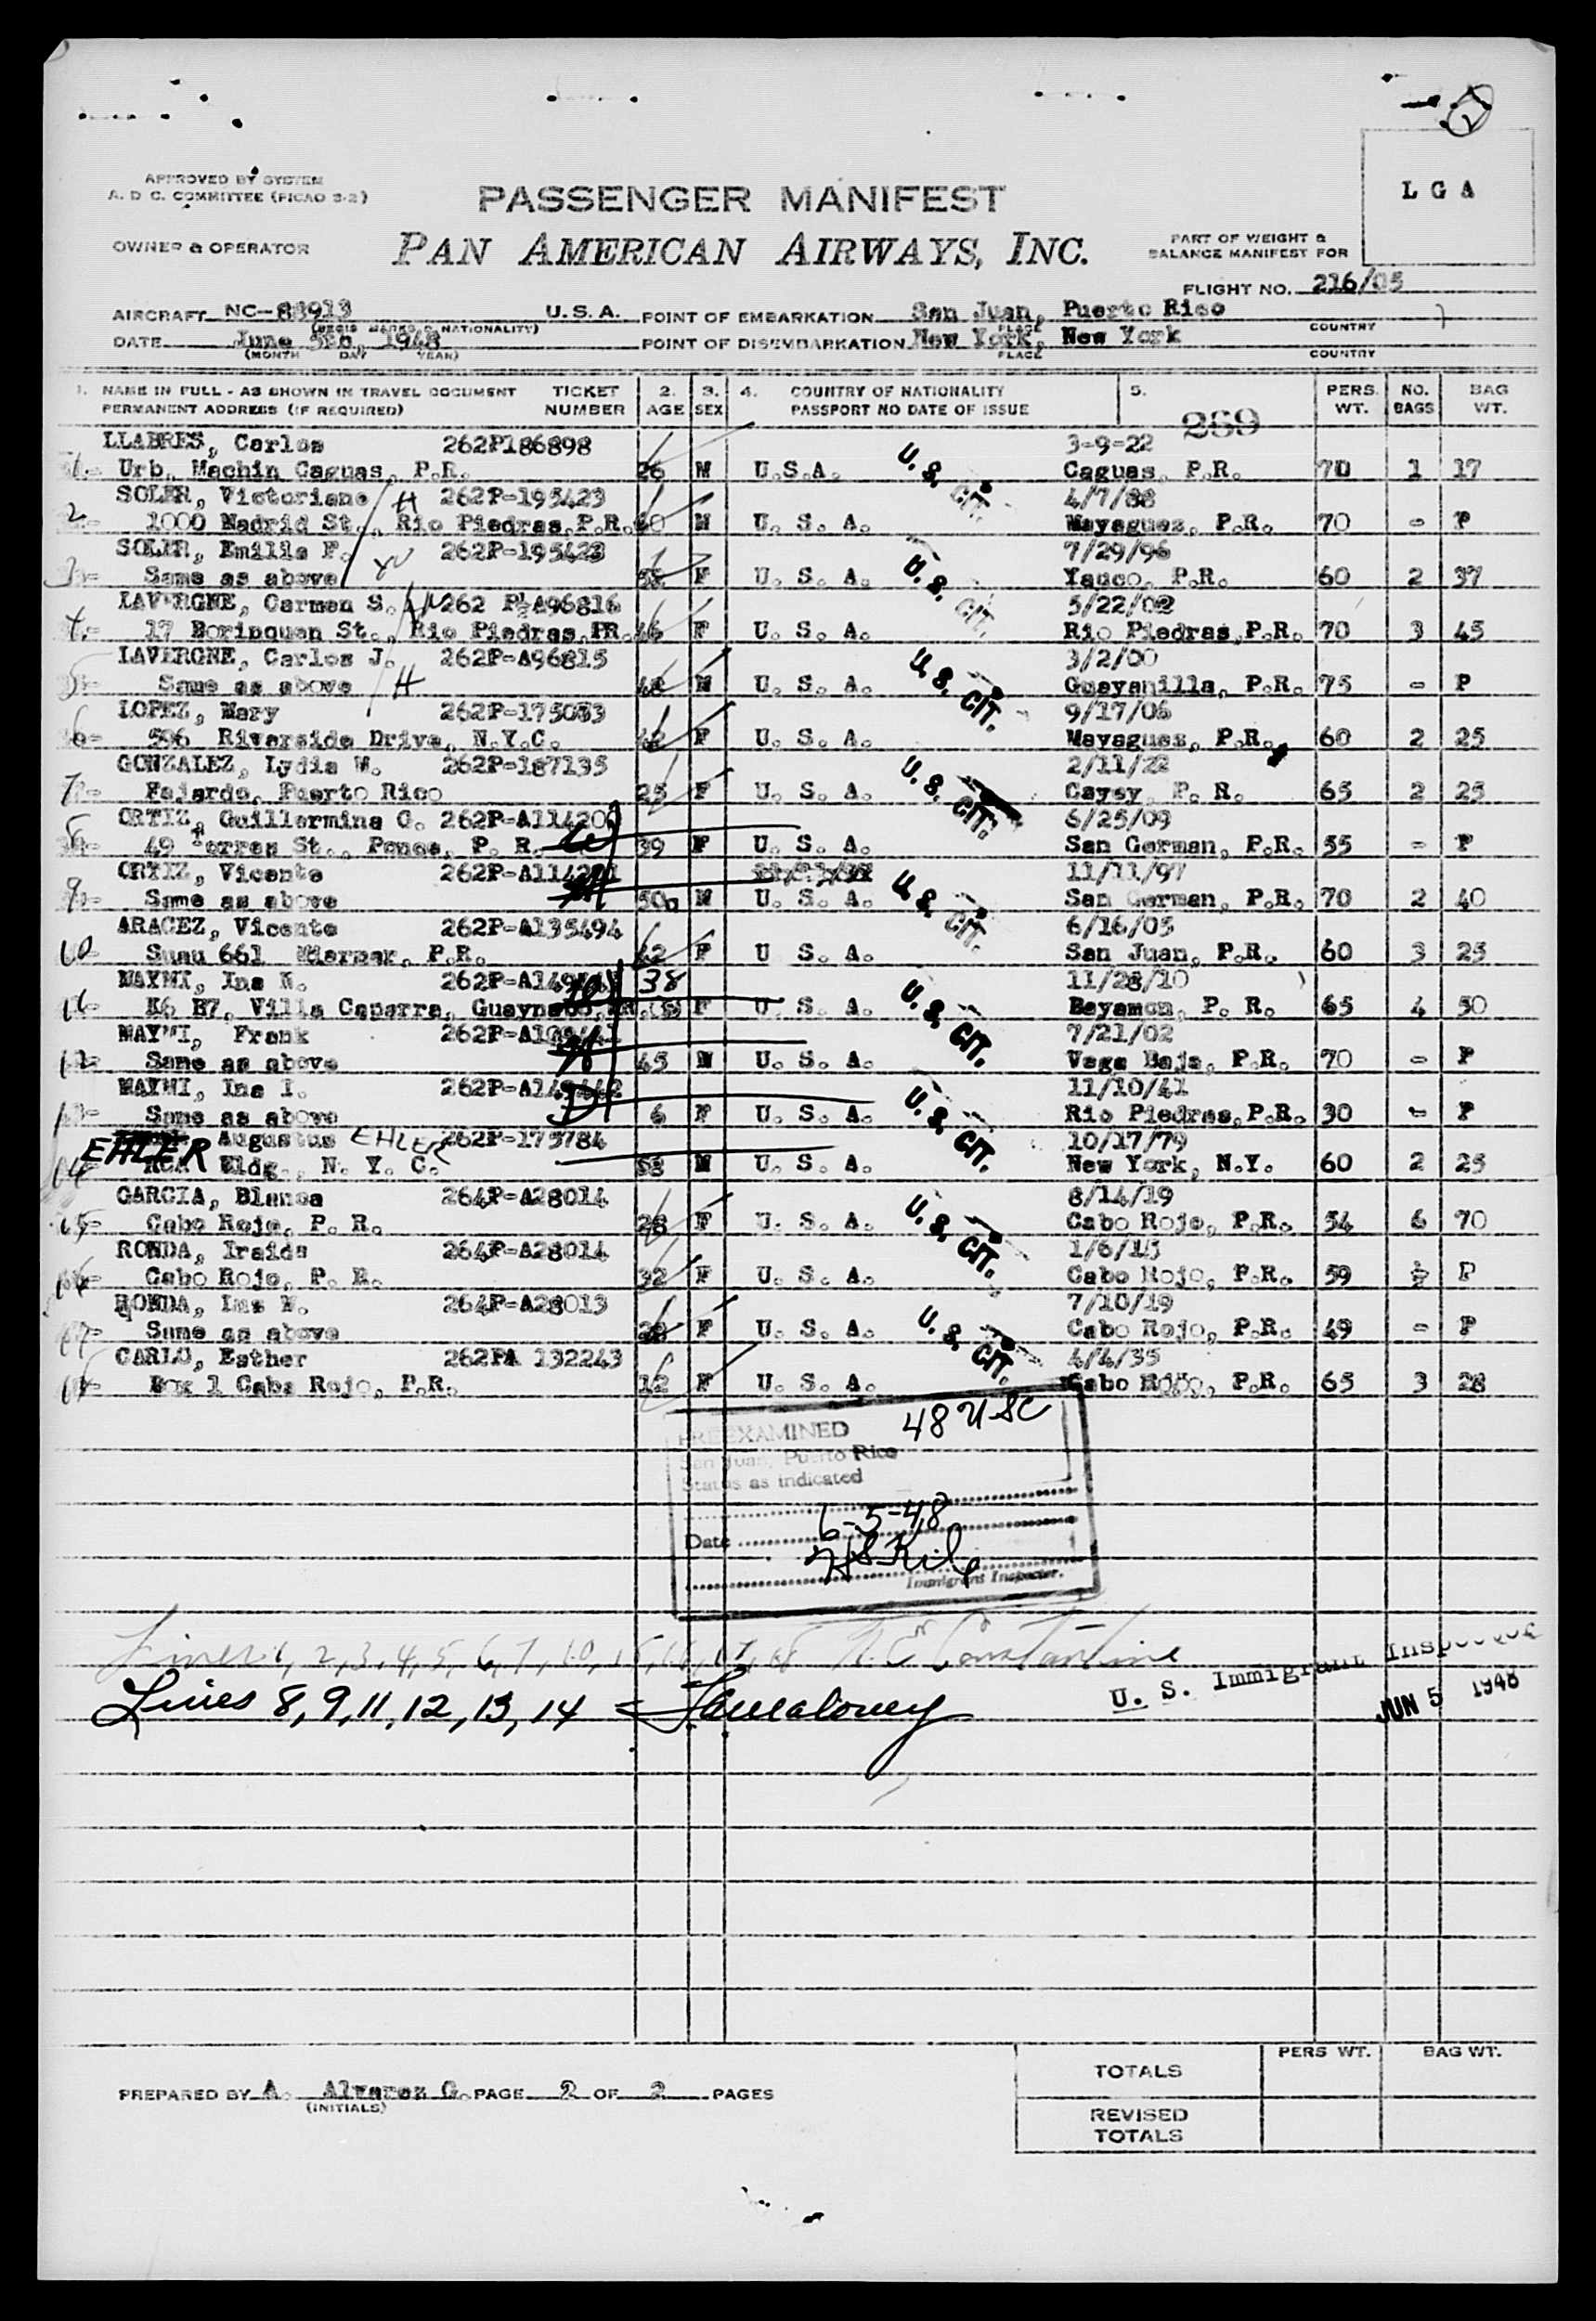 2
APPROVED BY SYSTEM
A. D C. COMMITTEE (PICAO S-2)
PASSENGER MANIFEST
L G A
OWNER & OPERATOR
PAN AMERICAN AIRWAYS, INC.
PART OF WEIGHT &
BALANCE MANIFEST FOR
FLIGHT NO. 216/05
AIRCRAFT NC-88913 U.S.A. POINT OF EMBARKATION San Juan, Puerto Rico
(REGIS MARKS & NATIONALITY) PLACE COUNTRY
DATE June 5th, 1948 POINT OF DISEMBARKATION New York, New York
(MONTH DAY YEAR) PLACE COUNTRY
1. NAME IN FULL - AS SHOWN IN TRAVEL DOCUMENT TICKET 2. 3. 4. COUNTRY OF NATIONALITY 5. PERS. NO. BAG
PERMANENT ADDRESS (IF REQUIRED) NUMBER AGE SEX PASSPORT NO DATE OF ISSUE 269 WT. BAGS WT.
LLABRES, Carlos 262P186898 3-9-22
1. Urb. Machin Caguas, P.R. 26 M U.S.A. U.S. CIT. Caguas, P.R. 70 1 17
SOLER, Victoriano H 262P-195423 4/7/88
2. 1000 Madrid St., Rio Piedras,P.R. 60 M U. S. A. Mayaguez, P.R. 70 - P
SOLER, Emilia F. W 262P-195423 7/29/96
3. Same as above F U. S. A. U.S. CIT. Yauco, P.R. 60 2 37
LAVERGNE, Carmen S. W 262 P½A96816 5/22/02
4. 17 Borinquen St., Rio Piedras,PR. 46 F U. S. A. Rio Piedras,P.R. 70 3 45
LAVERGNE, Carlos J. 262P-A96815 3/2/00
5. Same as above H 48 M U. S. A. U.S. CIT. Guayanilla, P.R. 75 - P
LOPEZ, Mary 262P-175033 9/17/06
6 596 Riverside Drive, N.Y.C. 42 F U. S. A. Mayaguez, P.R. 60 2 25
GONZALEZ, Lydia W. 262P-187135 2/11/22
7 Fajardo, Puerto Rico 25 F U. S. A. U.S. CIT. Cayey, P. R. 65 2 25
ORTIZ, Guillermina G. 262P-A114200 6/25/09
8 49 Torres St., Ponce, P. R. W 39 F U. S. A. San German, P.R. 55 - P
ORTIZ, Vicente 262P-A114201 11/11/97
9 Same as above H 50 M U. S. A. U.S. CIT. San German, P.R. 70 2 40
ARACEZ, Vicenta 262P-A135494 6/16/05
10 Suau 661 Miarmar, P.R. 42 F U S. A. San Juan, P.R. 60 3 25
MAYMI, Ina N. 38 11/28/10
11 K6 B7, Villa Caparra, Guaynabo, PR. F U. S. A. U.S. CIT. Bayamon, P. R. 65 4 50
MAYMI, Frank 7/21/02
12 Same as above H 45 M U. S. A. Vega Baja, P.R. 70 - P
MAYMI, Ina I. 262P-A149442 11/10/41
13 Same as above D 6 F U. S. A. U.S. CIT. Rio Piedras,P.R. 30 - P
EHLER Augustus EHLER 262P-175784 10/17/79
14 RCA Bldg., N. Y. C. 68 M U. S. A. New York, N.Y. 60 2 25
GARCIA, Blanca 264P-A28014 8/14/19
15 Cabo Rojo, P. R. 28 F U. S. A. U.S. CIT. Cabo Rojo, P.R. 54 6 70
RONDA, Iraida 264P-A28014
16 Cabo Rojo, P. R. 32 F U. S. A. Cabo Rojo, P.R. 59 P
RONDA, Ina N. 264P-A28013 7/10/19
17 Same as above 28 F U. S. A. U.S. CIT. Cabo Rojo, P.R. 49 - P
CARLO, Esther 262PA 132243 4/4/35
18 Box 1 Cabo Rojo, P.R. 12 F U. S. A. Cabo Rojo, P.R. 65 3 28
PREEXAMINED 48 USC
San Juan, Puerto Rico
Status as indicated
Date 6-5-48
Immigrant Inspector.
Lines 1, 2, 3, 4, 5, 6, 7, 10, 15, 16, 17, 18 Constantine
U. S. Immigrant Inspector
Lines 8, 9, 11, 12, 13, 14 JUN 5 1948
PREPARED BY A. Alvarez G. PAGE 2 OF 2 PAGES
(INITIALS)
PERS WT. BAG WT.
TOTALS
REVISED
TOTALS